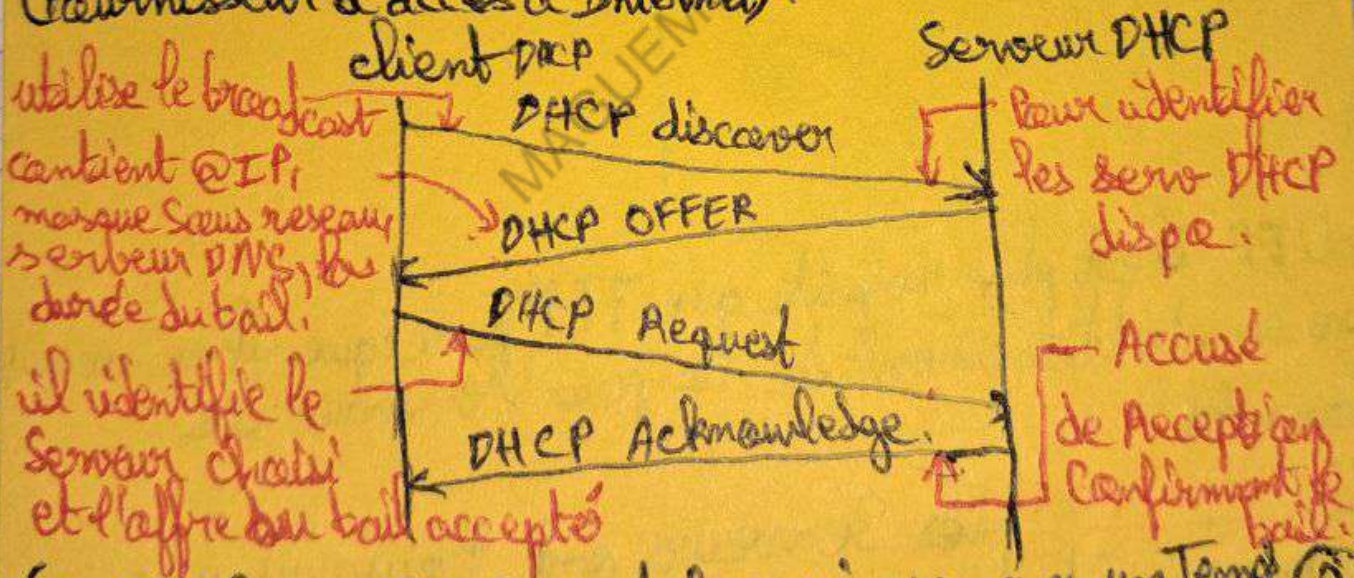 (Fournisseur d'accès à Internet)
client DHCP
Serveur DHCP
utilise le broadcast
DHCP discover
Pour identifier
les serv DHCP
dispo.
contient @IP,
masque sous reseau,
serveur DNS, la
durée du bail.
DHCP OFFER
DHCP Request
il identifie le
Serveur choisi
et l'offre du bail accepté
DHCP Acknowledge.
Accusé
de Reception
Confirmant le
bail.
Temps
MACUEM